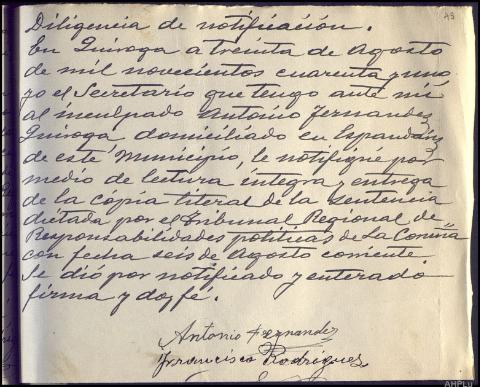 49
Diligencia de notificación.
En Quiroga a treinta de Agosto
de mil novecientos cuarenta y uno
yo el Secretario que tengo ante mi
al inculpado Antonio Fernandez
Quiroga domiciliado en
de este Municipio, le notifiqué por
medio de lectura íntegra y entrega
de la cópia literal de la sentencia
dictada por el Tribunal Regional de
Responsabilidades políticas de La Coruña
con fecha seis de Agosto corriente
Se dió por notificado y enterado
firma y doy fé.
Antonio Fernandez
Francisco Rodriguez
AHPLu